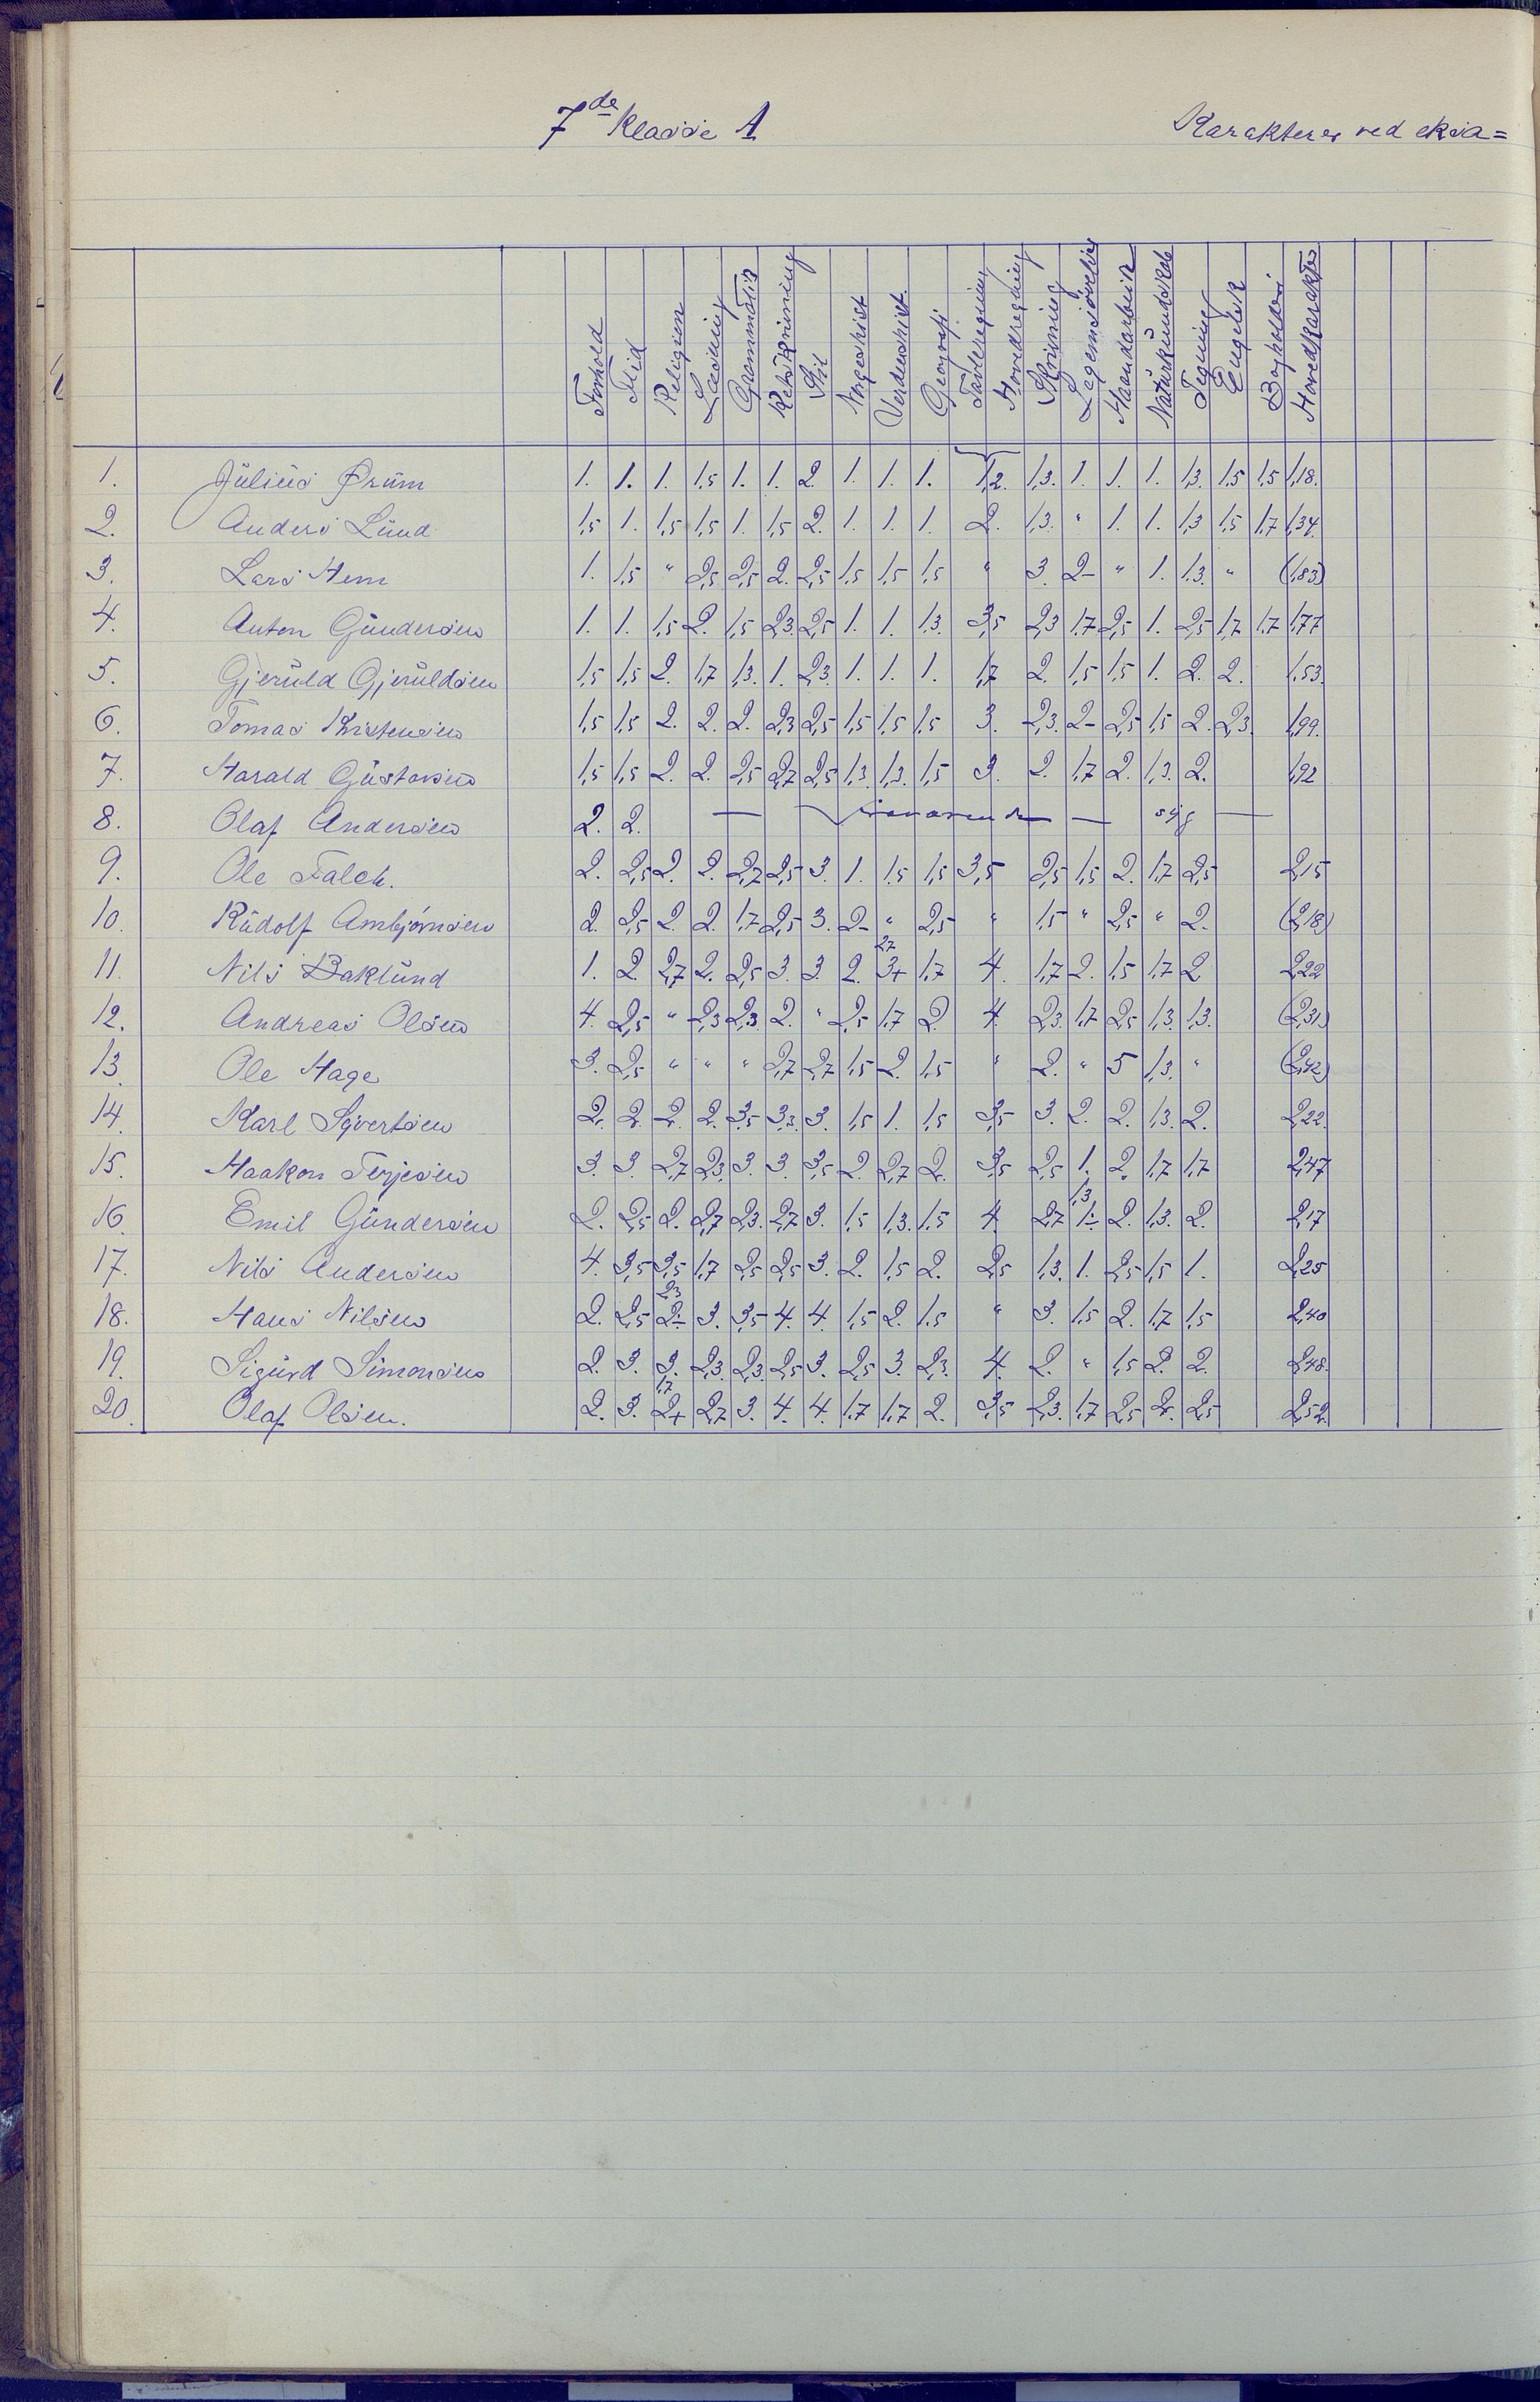 7de Klasse A
Karakterer ved eksa=
Forhold Flid Religion Læsning Grammatik Retskrivning Stil Norgeshist Verdenshist. Geografi Tavleregning Hovedregning Skrivning Legemsøvelse Haandarbeide Naturkundskab Tegning Engelsk Bogholderi Hovedkarakter
1. Julius Ørum 1. 1. 1. 1,5 1. 1. 2. 1. 1. 1. 1,2. 1,3. 1. 1. 1. 1,3. 1,5 1,5 1,18.
2. Anders Lund 1,5 1. 1,5 1,5 1. 1,5 2. 1. 1. 1. 2. 1,3. " 1. 1. 1,3 1,5 1,7 1,34.
3. Lars Hem 1. 1,5 " 2,5 2,5 2. 2,5 1,5 1,5 1,5 " 3. 2- " 1. 1,3. " (1,83)
4. Anton Gundersen 1. 1. 1,5 2. 1,5 2,3. 2,5 1. 1. 1,3. 3,5 2,3 1,7 2,5 1. 2,5 1,7 1,7 1,77
5. Gjeruld Gjeruldsen 1,5 1,5 2. 1,7 1,3. 1. 2,3. 1. 1. 1. 1,7 2. 1,5 1,5 1. 2. 2. 1,53.
6. Tomas Kristensen 1,5 1,5 2. 2. 2. 2,3 2,5 1,5 1,5 1,5 3. 2,3. 2- 2,5 1,5 2. 2,3. 1,99.
7. Harald Gustavsen 1,5 1,5 2. 2. 2,5 2,7 2,5 1,3. 1,3. 1,5 3. 2. 1,7 2. 1,3. 2. 1,92
8. Olaf Andersen 2. 2. — — sig —
9. Ole Falch. 2. 2,5 2. 2. 2,7 2,5 3. 1. 1,5 1,5 3,5 2,5 1,5 2. 1,7 2,5 2,15
10. Rudolf Ambjørnsen 2. 2,5 2. 2. 1,7 2,5 3. 2- " 2,5 " 1,5 " 2,5 " 2. (2,18)
2,7
11. Nils Baklund 1. 2. 2,7 2. 2,5 3. 3. 2. 3+ 1,7 4. 1,7 2. 1,5 1,7 2 2,22
12. Andreas Olsen 4. 2,5 " 2,3 2,3. 2. " 2,5 1,7 2. 4. 2,3. 1,7 2,5 1,3. 1,3. (2,31)
13. Ole Hage 3. 2,5 " " " 2,7 2,7 1,5 2. 1,5 " 2. " 5 1,3. " (2,42)
14. Karl Syvertsen 2. 2. 2. 2. 3,5 3,3. 3. 1,5 1. 1,5 3,5 3. 2. 2. 1,3. 2. 2,22.
15. Haakon Terjesen 3. 3. 2,7 2,3. 3. 3. 3,5 2. 2,7 2. 3,5 2,5 1. 2. 1,7 1,7 2,47
1,3
16. Emil Gundersen 2. 2,5 2. 2,7 2,3. 2,7 3. 1,5 1,3. 1,5 4 2,7 1- 2. 1,3. 2. 2,17
17. Nils Andersen 4. 3,5 3,5 1,7 2,5 2,5 3. 2. 1,5 2. 2,5 1,3. 1. 2,5 1,5 1. 2,25
2,3
18. Hans Nilsen 2. 2,5 2- 3. 3,5 4. 4. 1,5 2. 1,5 " 3. 1,5 2. 1,7 1,5 2,40
19. Sigurd Simonsen 2. 3. 3. 2,3. 2,3. 2,5 3. 2,5 3. 2,3. 4. 2. " 1,5 2. 2. 2,48.
1,7
20. Olaf Olsen. 2. 3. 2+ 2,7 3. 4. 4. 1,7 1,7 2. 3,5 2,3. 1,7 2,5 2. 2,5 2,52.